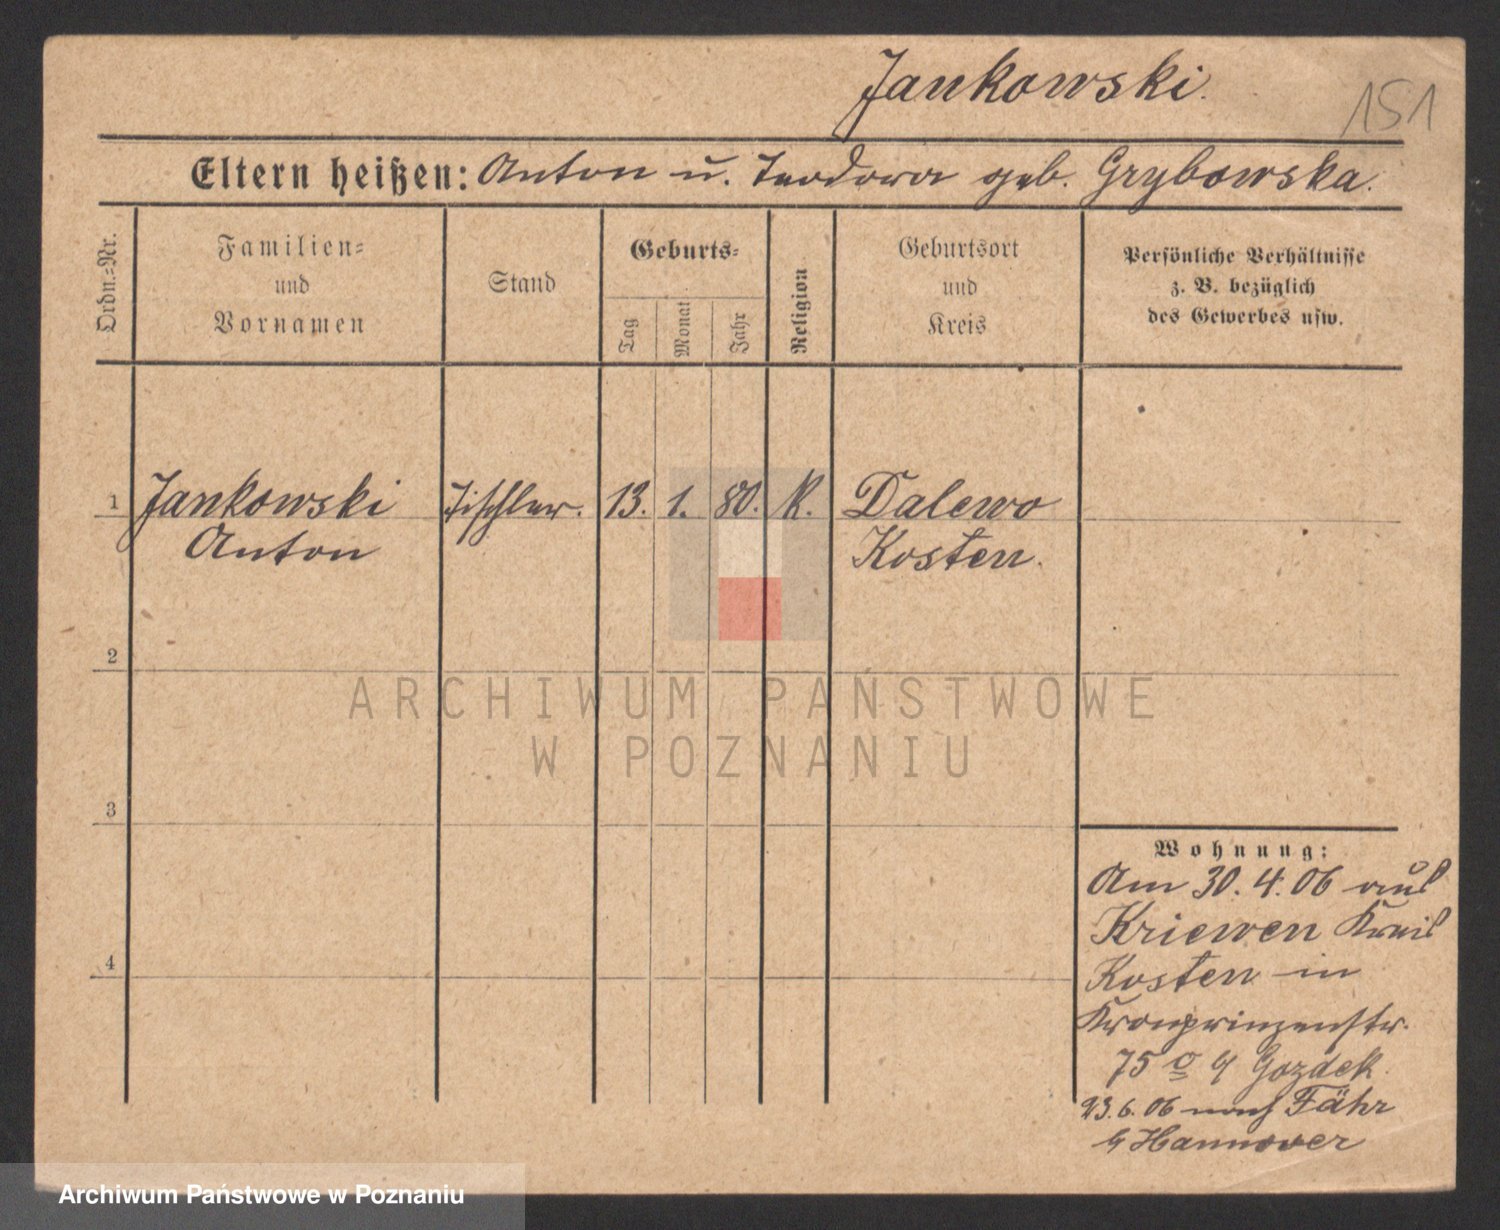 Jankowski.
151
Eltern heißen: Anton u. Teodora geb. Grybowska.
Ordn.-Nr.
Familien-
und
Vornamen
Stand
Geburts-
Tag
Monat
Jahr
Religion
Geburtsort
und
Kreis
Persönliche Verhältnisse
z. B. bezüglich
des Gewerbes usw.
1 Jankowski Tischler. 13. 1. 80. K. Dalewo
Anton Kosten.
2
ARCHIWUM PAŃSTWOWE
W POZNANIU
3
Wohnung:
Am 30. 4. 06 aus
Kriewen Kreis
Kosten in
Kronprinzenstr.
75 b/ Gozdek
23. 6. 06 nach Fähr
b/ Hannover
4
Archiwum Państwowe w Poznaniu